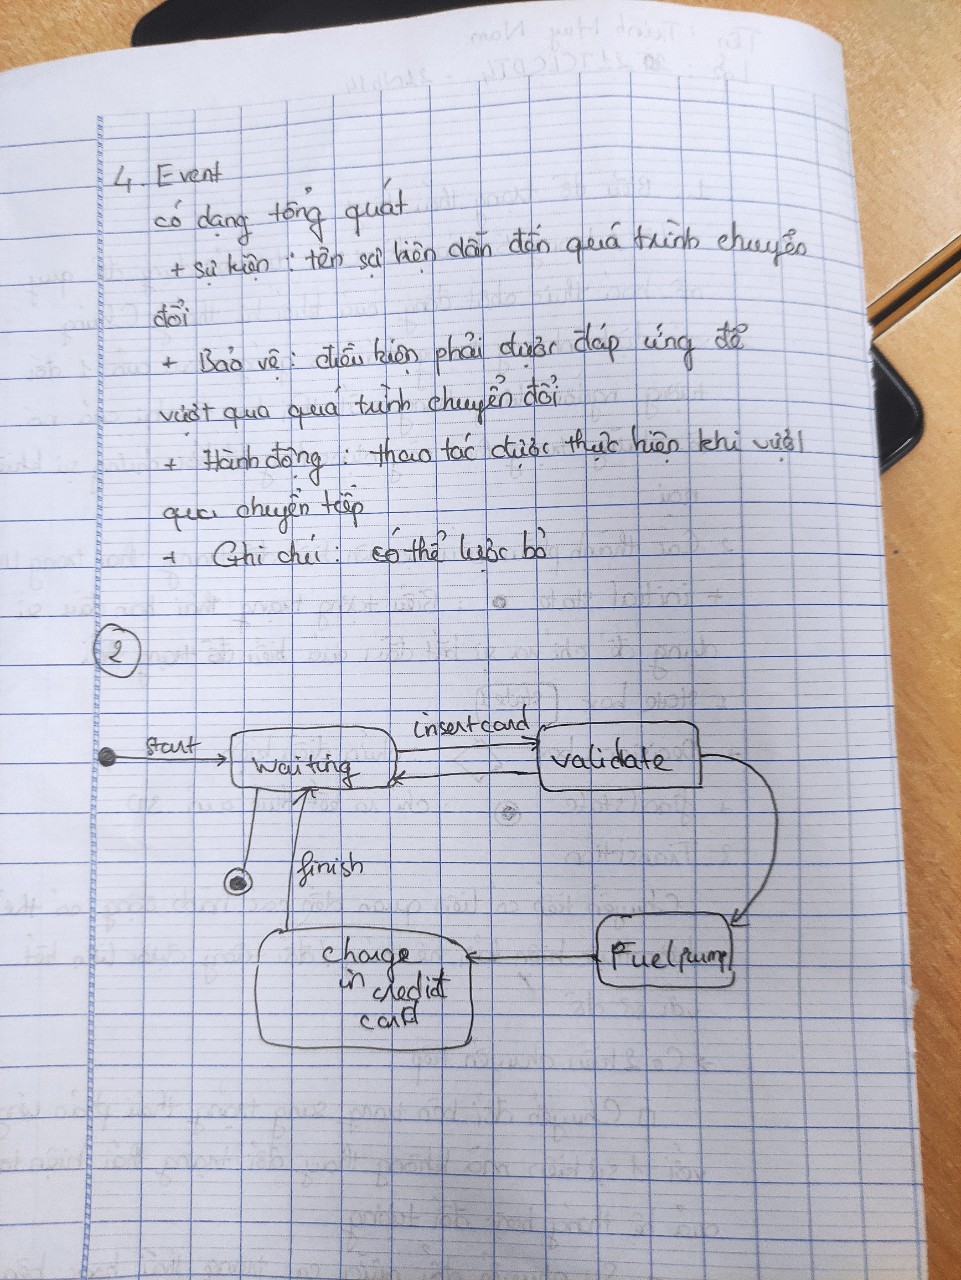 4. Event
có dạng tổng quát
+ sự kiện : tên sự kiện dẫn đến quá trình chuyển
đổi
+ Bảo vệ : điều kiện phải được đáp ứng để
vượt qua quá trình chuyển đổi
+ Hành động : thao tác được thực hiện khi vượt
qua chuyển tiếp
+ Ghi chú : có thể lược bỏ
2
start
waiting
insert card
validate
finish
charge
in credit
card
Fuel pump